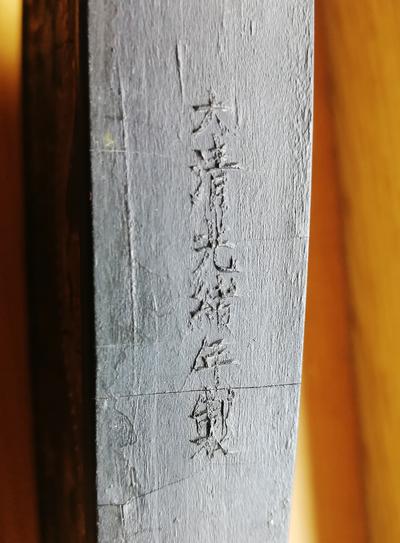 大清光緒年製